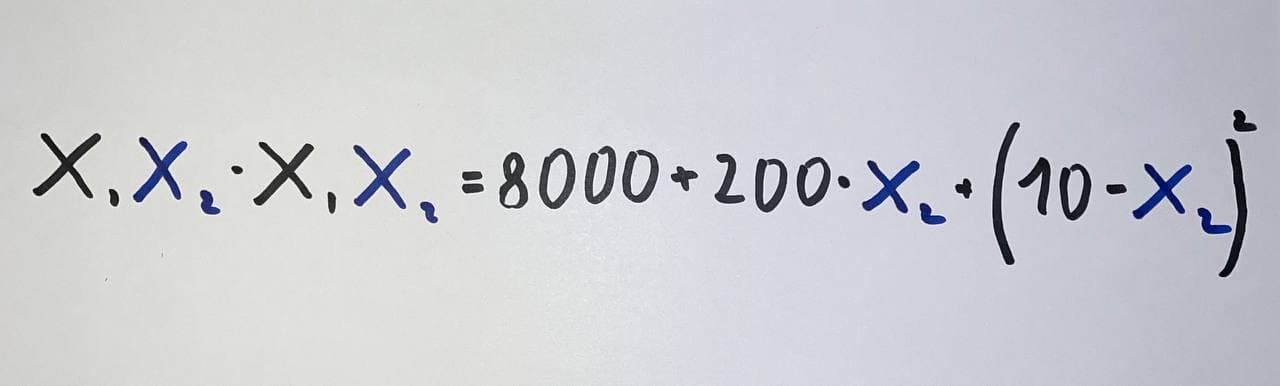 X₁X₂·X₁X₂=8000+200·X₂+(10-X₂)²